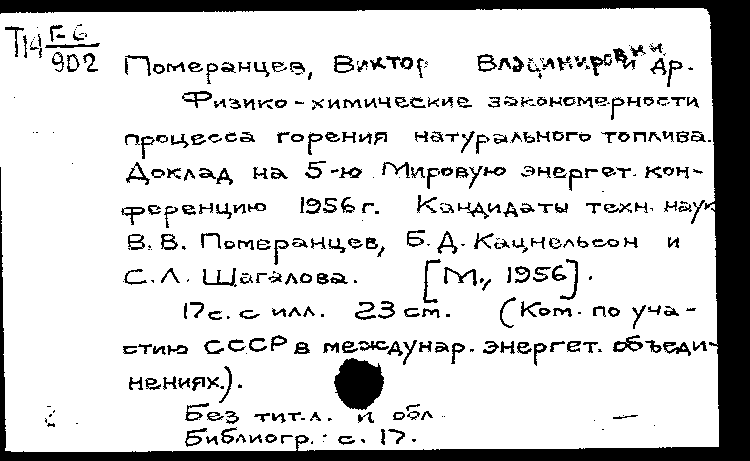 Т14 Г-6
902
Померанцев, Виктор Владимирович и др.
Физико-химические закономерности
процесса горения натурального топлива.
Доклад на 5-ю Мировую энергет. кон-
ференцию 1956 г. Кандидаты техн. наук
В. В. Померанцев, Б. Д. Кацнельсон и
С. Л. Шагалова. [М., 1956].
17 с. с илл. 23 см. (Ком. по уча-
стию СССР в междунар. энергет. объеди-
нениях.).
Без тит. л. и обл.
Библиогр.: с. 17.